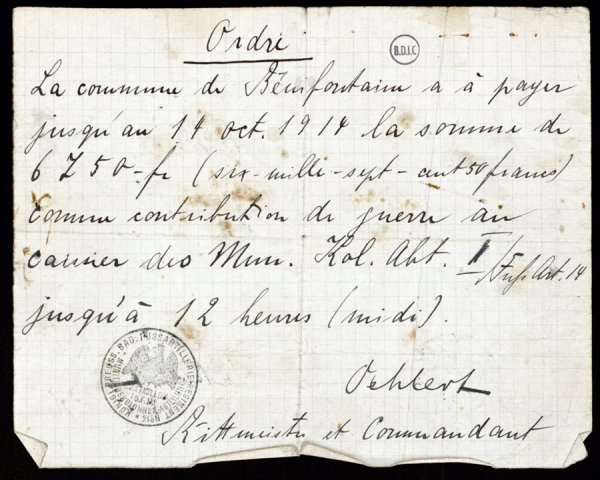 Ordre
B.D.I.C
La commune de Bénifontaine a à payer
jusqu'au 14 oct. 1914 la somme de
6750-fr (six-mille-sept-cent 50 francs)
comme contribution de guerre au
caissier des Mun. Kol. Abt. I/Fuß Art. 14
jusqu'à 12 heures (midi).
KÖNIGL. PREUSS. BAD. FUSSARTILLERIE-REGIMENT No 14
Oehlert
Rittmeister et Commandant